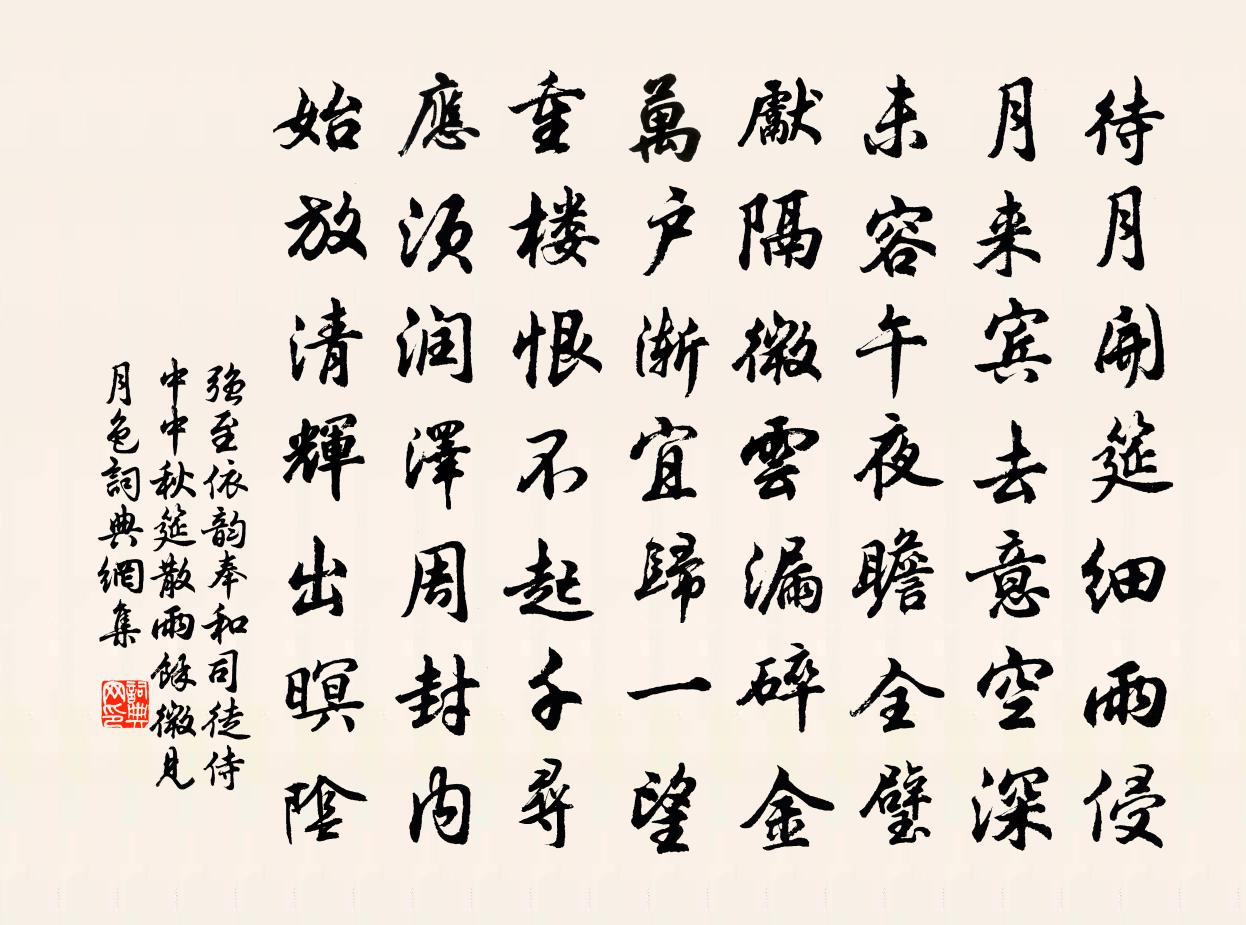 待月開筵細雨侵
月来賓去意空深
未容午夜瞻全璧
獻隔微雲漏碎金
萬户漸宜歸一望
重楼恨不起千尋
應須润澤周封内
始放清輝出暝陰
强至依韵奉和司徒侍
中中秋筵散雨餘微見
月色詞典網集
詞典
网印